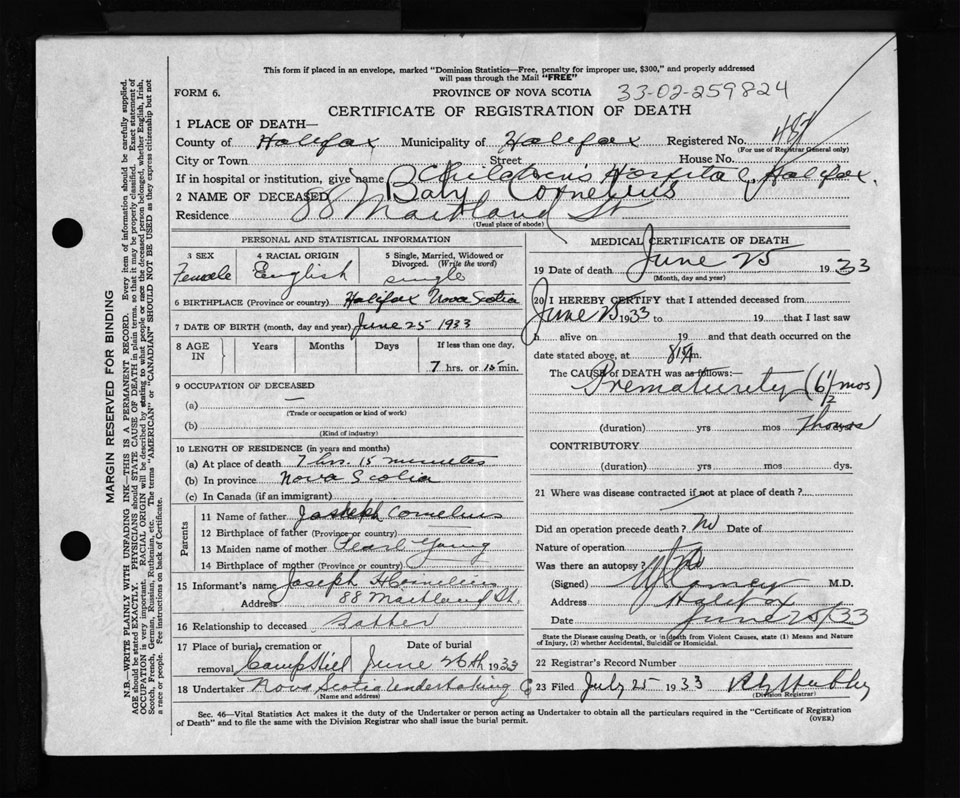 This form if placed in an envelope, marked "Dominion Statistics—Free, penalty for improper use, $300," and properly addressed
will pass through the Mail "FREE"
FORM 6.
PROVINCE OF NOVA SCOTIA 33-02-259824
CERTIFICATE OF REGISTRATION OF DEATH
1 PLACE OF DEATH—
County of Halifax Municipality of Halifax Registered No.
(For use of Registrar General only)
City or Town Street House No.
If in hospital or institution, give name Childrens Hospital, Halifax.
2 NAME OF DECEASED Baby Cornelius
Residence 88 Maitland St
(Usual place of abode)
PERSONAL AND STATISTICAL INFORMATION
3 SEX 4 RACIAL ORIGIN 5 Single, Married, Widowed or
Divorced. (Write the word)
Female English single
6 BIRTHPLACE (Province or country) Halifax Nova Scotia
7 DATE OF BIRTH (month, day and year) June 25 1933
8 AGE
IN
Years Months Days If less than one day,
7 hrs. or 15 min.
9 OCCUPATION OF DECEASED
(a) —
(Trade or occupation or kind of work)
(b)
(Kind of industry)
10 LENGTH OF RESIDENCE (in years and months)
(a) At place of death 7 hrs. 15 minutes
(b) In province Nova Scotia
(c) In Canada (if an immigrant)
Parents
11 Name of father Joseph Cornelius
12 Birthplace of father (Province or country)
13 Maiden name of mother Pearl Young
14 Birthplace of mother (Province or country)
15 Informant's name Joseph Cornelius
Address 88 Maitland St.
16 Relationship to deceased Father
17 Place of burial, cremation or Date of burial
removal Camp Hill June 26th 1933
18 Undertaker Nova Scotia Undertaking Co
(Name and address)
MEDICAL CERTIFICATE OF DEATH
19 Date of death June 25 1933
(Month, day and year)
20 I HEREBY CERTIFY that I attended deceased from
June 25 1933 to 19 that I last saw
h alive on 19 and that death occurred on the
date stated above, at m.
The CAUSE of DEATH was as follows:—
Prematurity (6½ mos)
(duration) yrs mos
CONTRIBUTORY
(duration) yrs mos dys.
21 Where was disease contracted if not at place of death?
Did an operation precede death? No Date of
Nature of operation
Was there an autopsy? No
(Signed) M.D.
Address Halifax
Date June 25/33
State the Disease causing Death, or in death from Violent Causes, state (1) Means and Nature
of Injury, (2) whether Accidental, Suicidal or Homicidal.
22 Registrar's Record Number
23 Filed July 25 1933
(Division Registrar)
Sec. 46—Vital Statistics Act makes it the duty of the Undertaker or person acting as Undertaker to obtain all the particulars required in the "Certificate of Registration
of Death" and to file the same with the Division Registrar who shall issue the burial permit. (OVER)
MARGIN RESERVED FOR BINDING
N.B.—WRITE PLAINLY WITH UNFADING INK—THIS IS A PERMANENT RECORD. Every item of information should be carefully supplied.
AGE should be stated EXACTLY. PHYSICIANS should STATE CAUSE OF DEATH in plain terms, so that it may be properly classified. Exact statement of
OCCUPATION is very important. RACIAL ORIGIN will be described by stating to what people or race the deceased person belonged, whether English, Irish,
Scotch, French, German, Russian, Ruthenian, etc. The terms "AMERICAN" or "CANADIAN" SHOULD NOT BE USED as they express citizenship but not
a race or people. Fee instructions on back of Certificate.